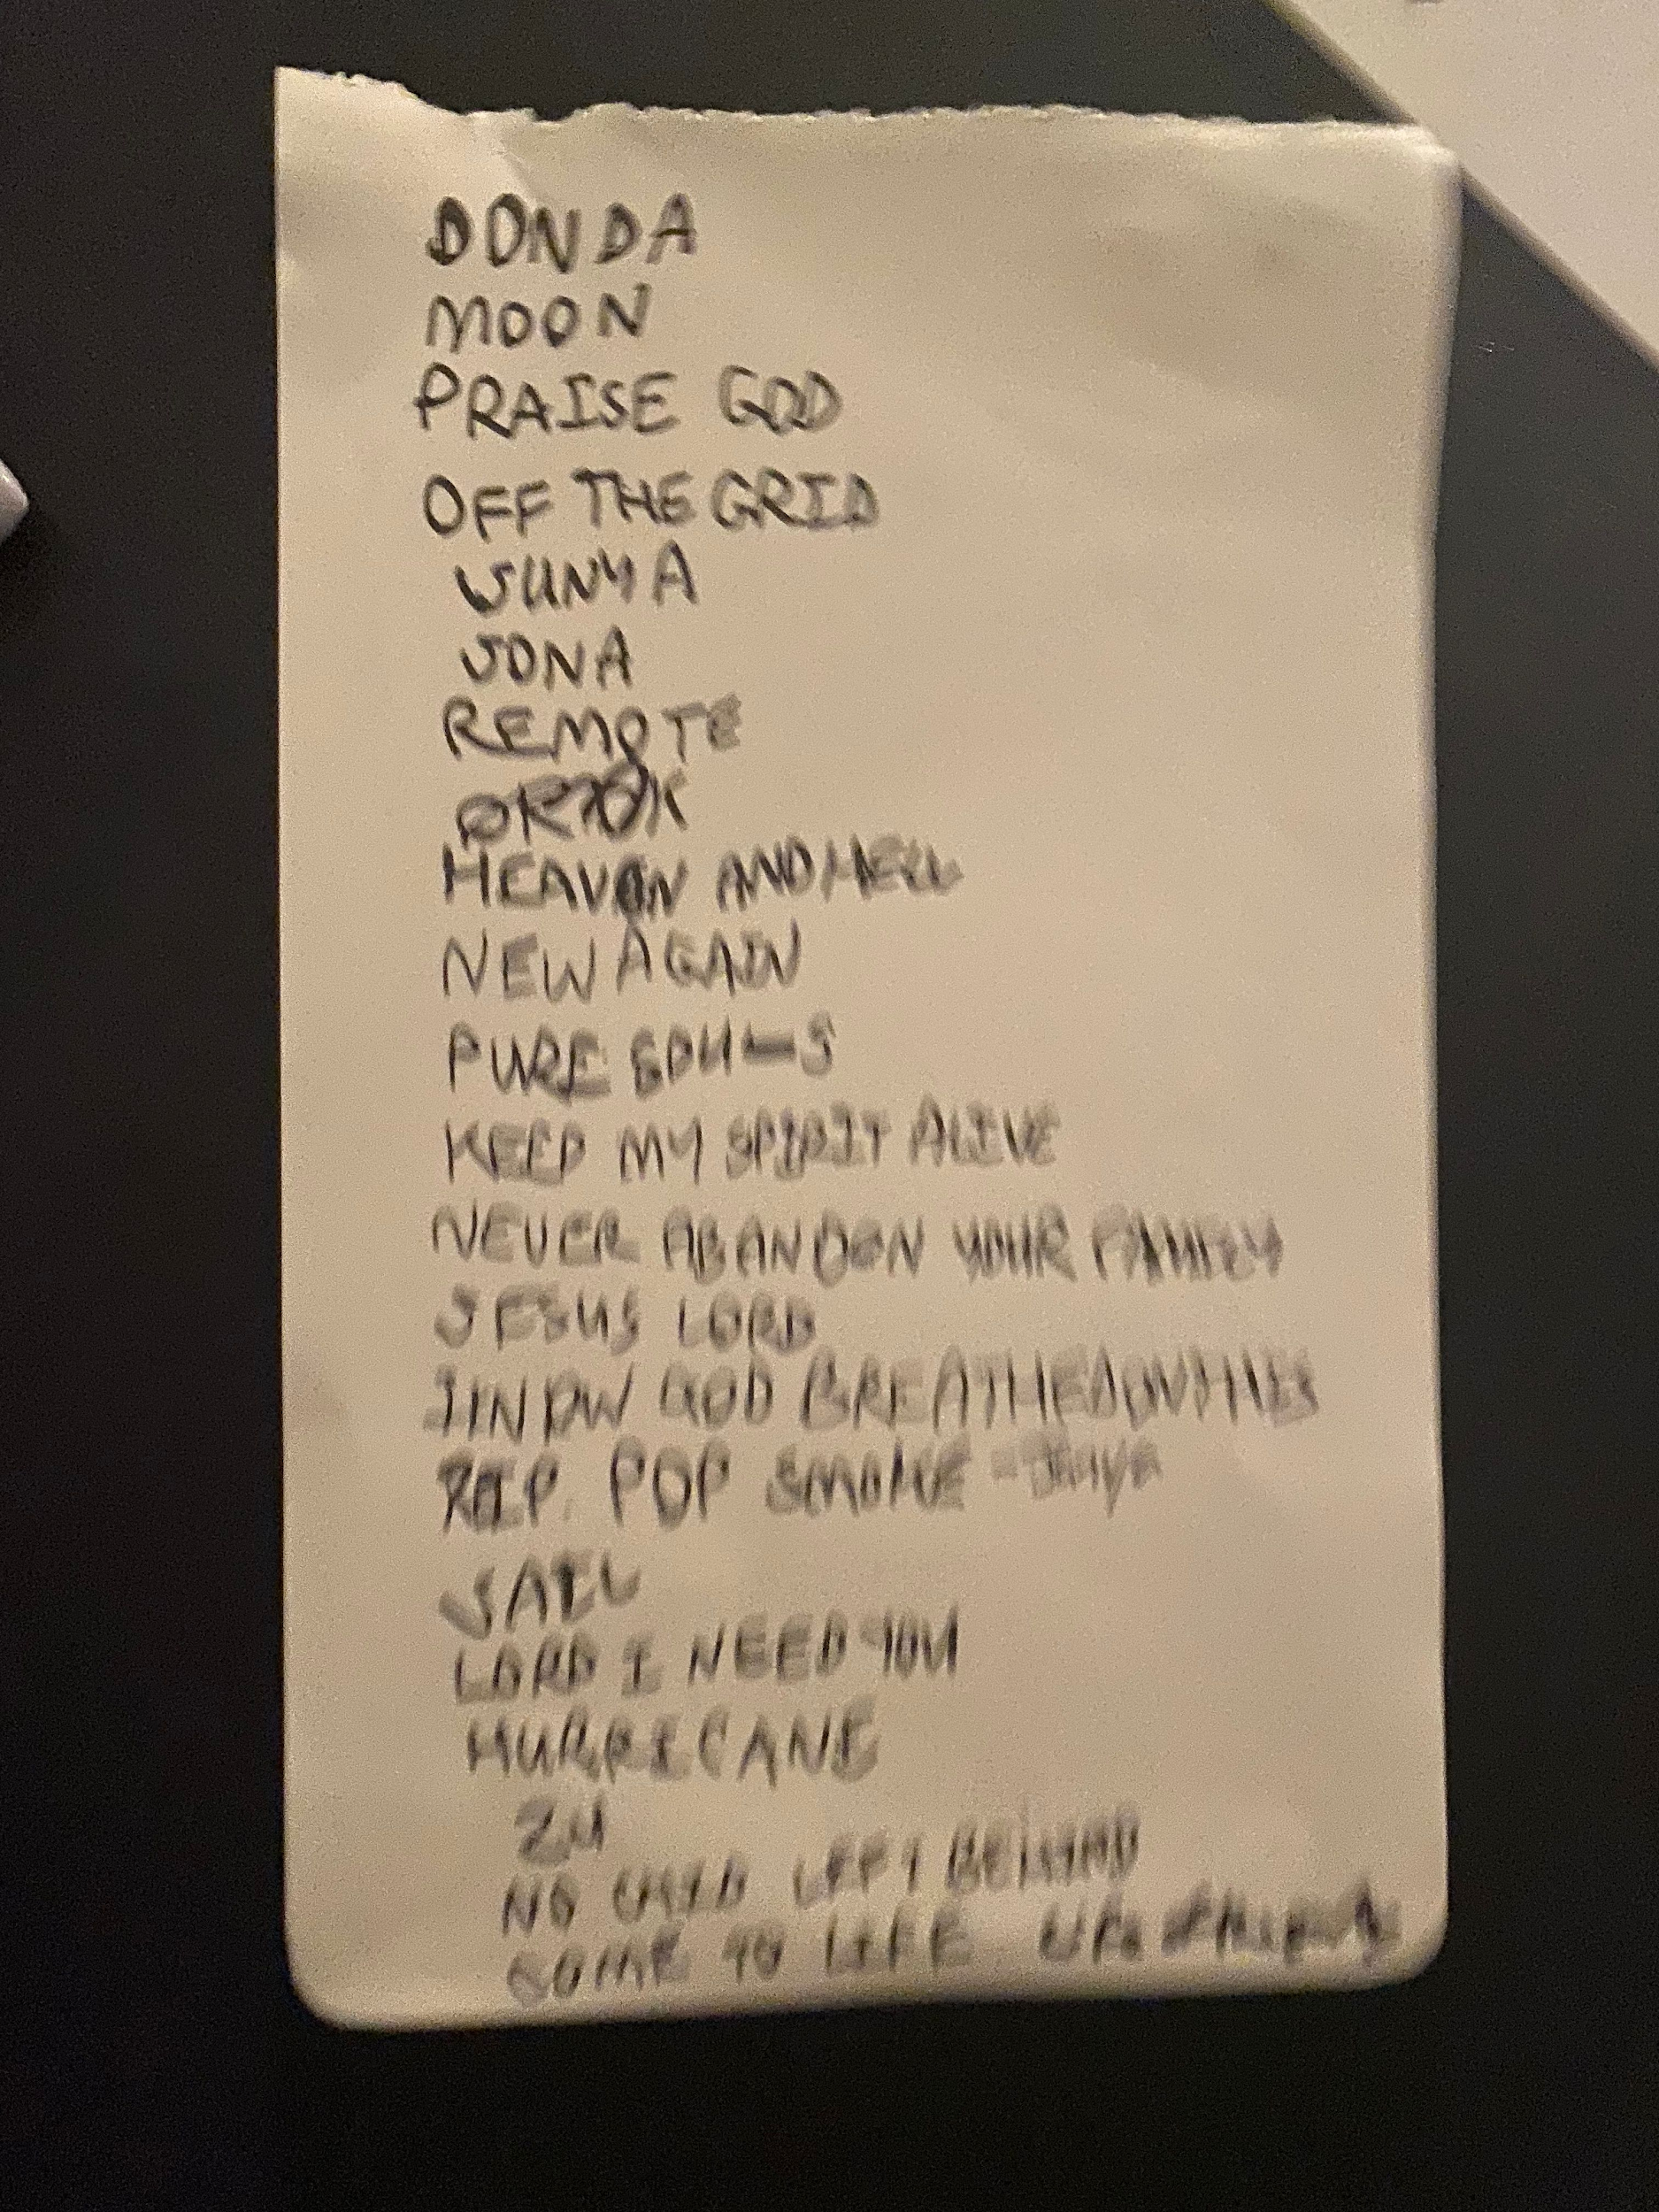 DONDA
MOON
PRAISE GOD
OFF THE GRID
JUNYA
JONA
REMOTE
HEAVEN AND HELL
NEW AGAIN
PURE SOULS
KEEP MY SPIRIT ALIVE
NEVER ABANDON YOUR FAMILY
JESUS LORD
I KNOW GOD BREATHED ON THIS
R.I.P. POP SMOKE -
JAIL
LORD I NEED YOU
HURRICANE
24
NO CHILD LEFT BEHIND
COME TO LIFE